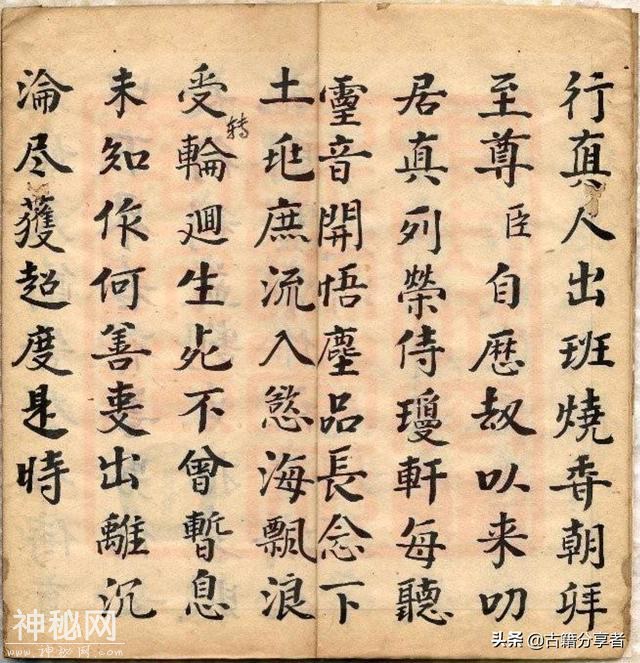 行真人出班燒香朝拜
至尊臣自歷劫以来叨
居真列榮侍瓊軒每聽
靈音開悟塵品長念下
土
庶流入慾海飄浪
受轉輪迴生死不曾暫息
未知作何善
出離沉
淪尽獲超度是時
神秘网
www.shenmiw.com
头条 @古籍分享者